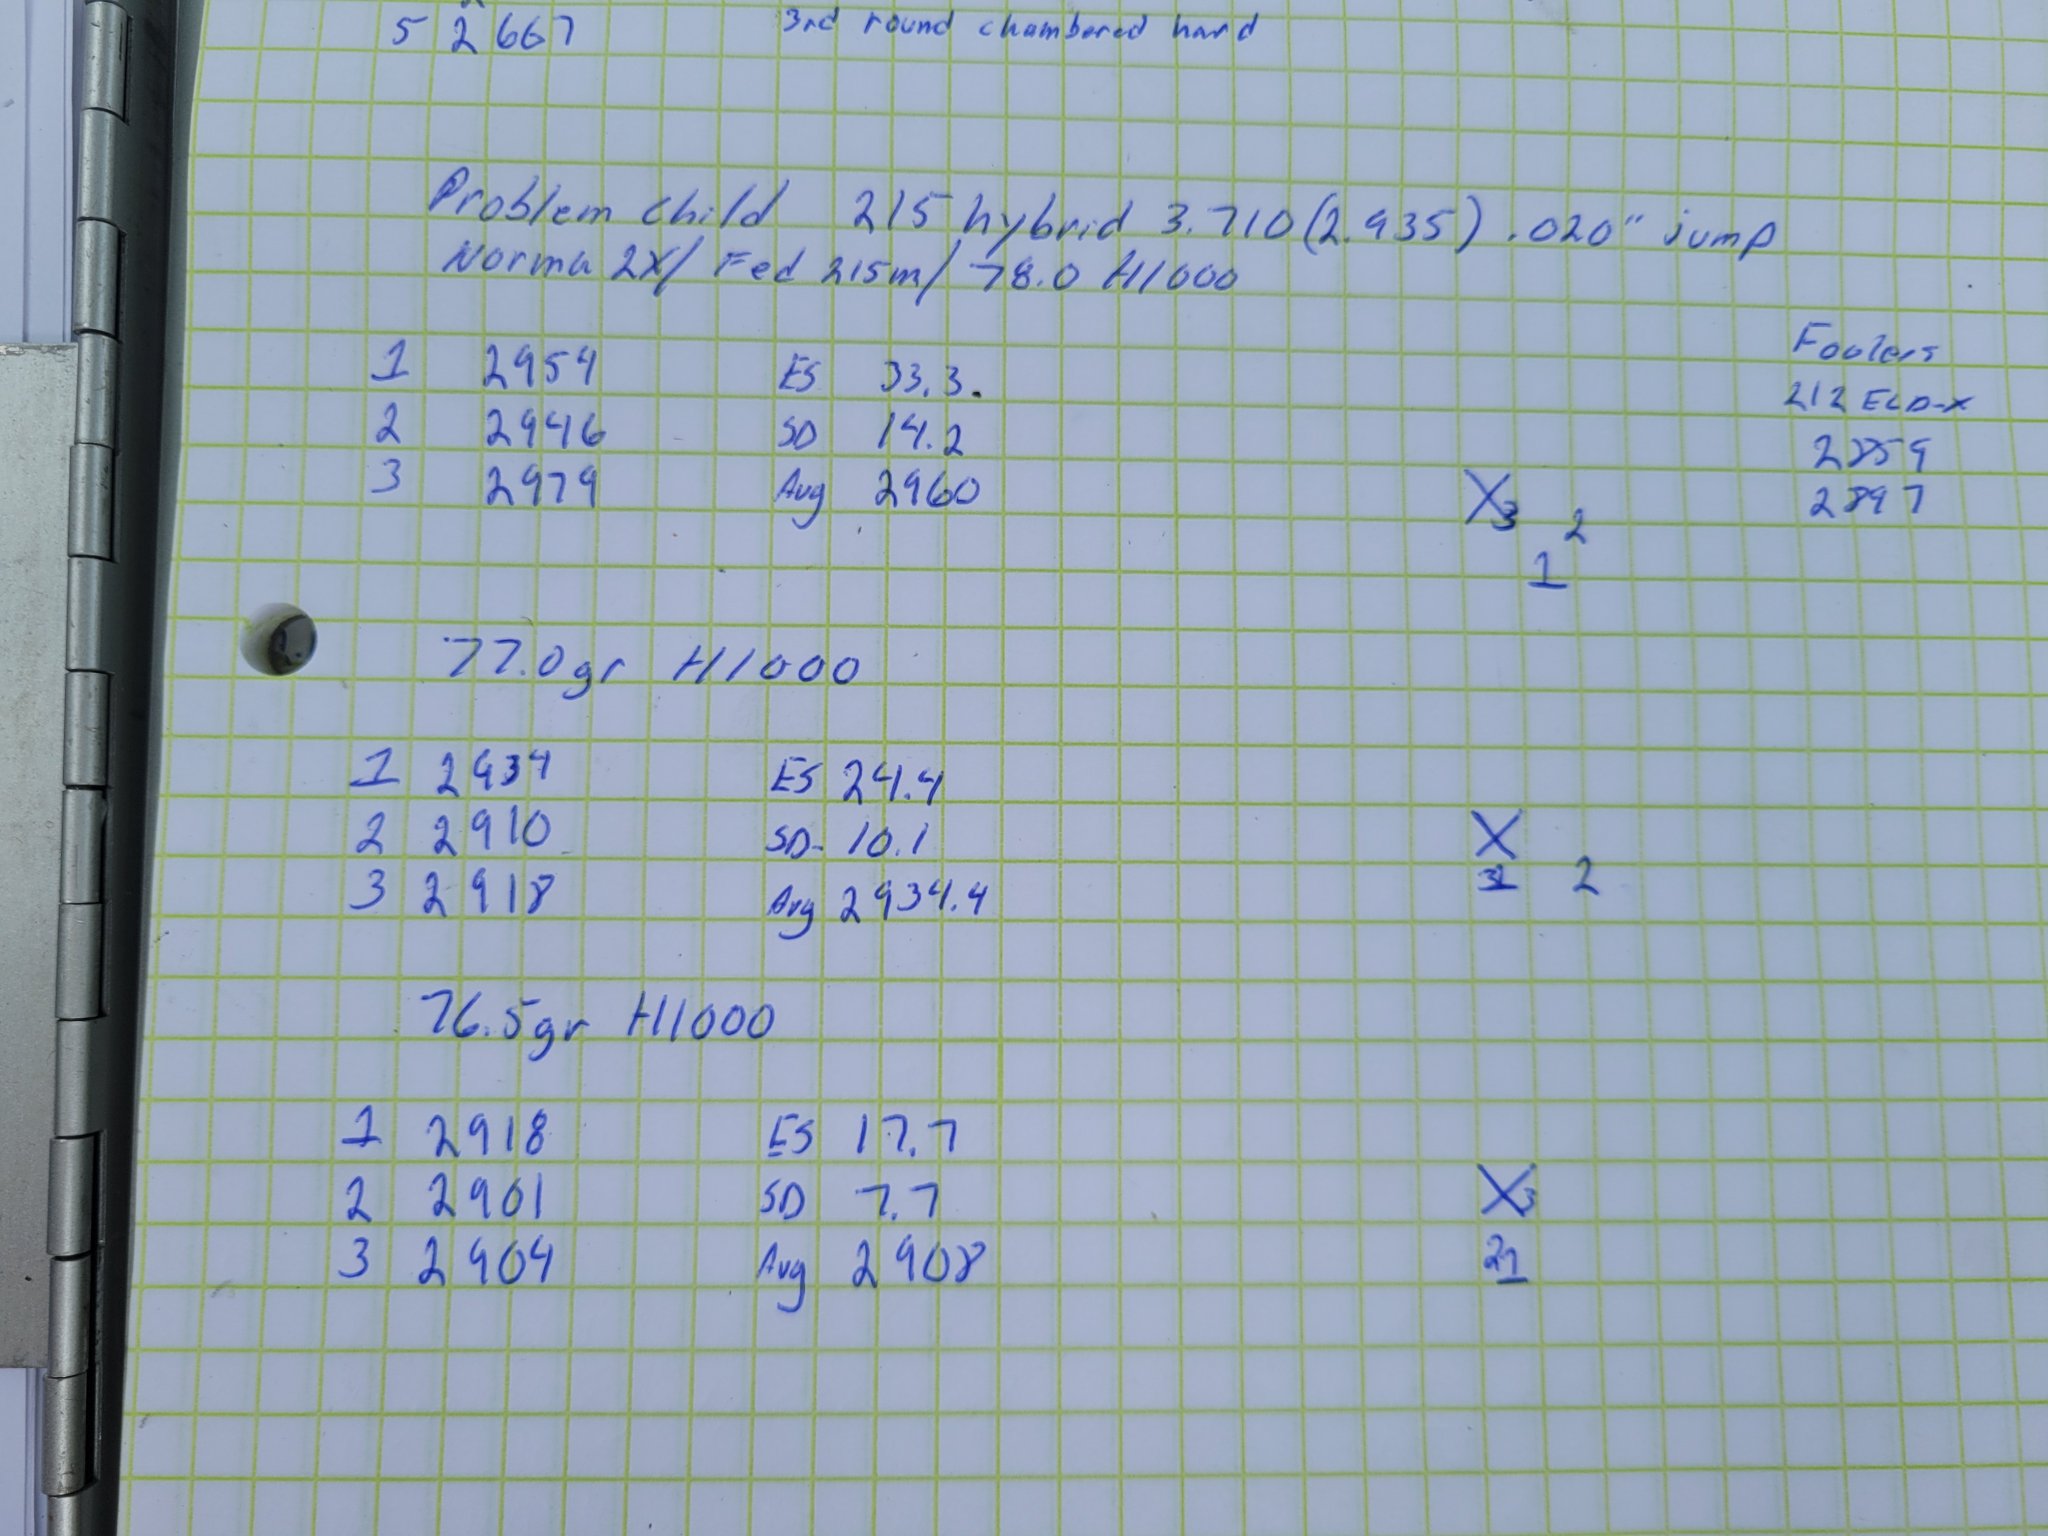 5 2667 3rd round chambered hard
Problem child 215 hybrid 3.710 (2.935) .020" jump
Norma 2X/ Fed 215m/ 78.0 H1000
Foulers
1 2954 ES 33.3. 212 ELD-X
2 2946 SD 14.2 2859
3 2979 Avg 2960 2897
X3 2
1
77.0gr H1000
1 2934 ES 24.4
2 2910 SD- 10.1 X
3 2918 Avg 2934.4 31 2
76.5gr H1000
1 2918 ES 17.7
2 2901 SD 7.7 X3
3 2904 Avg 2908 21